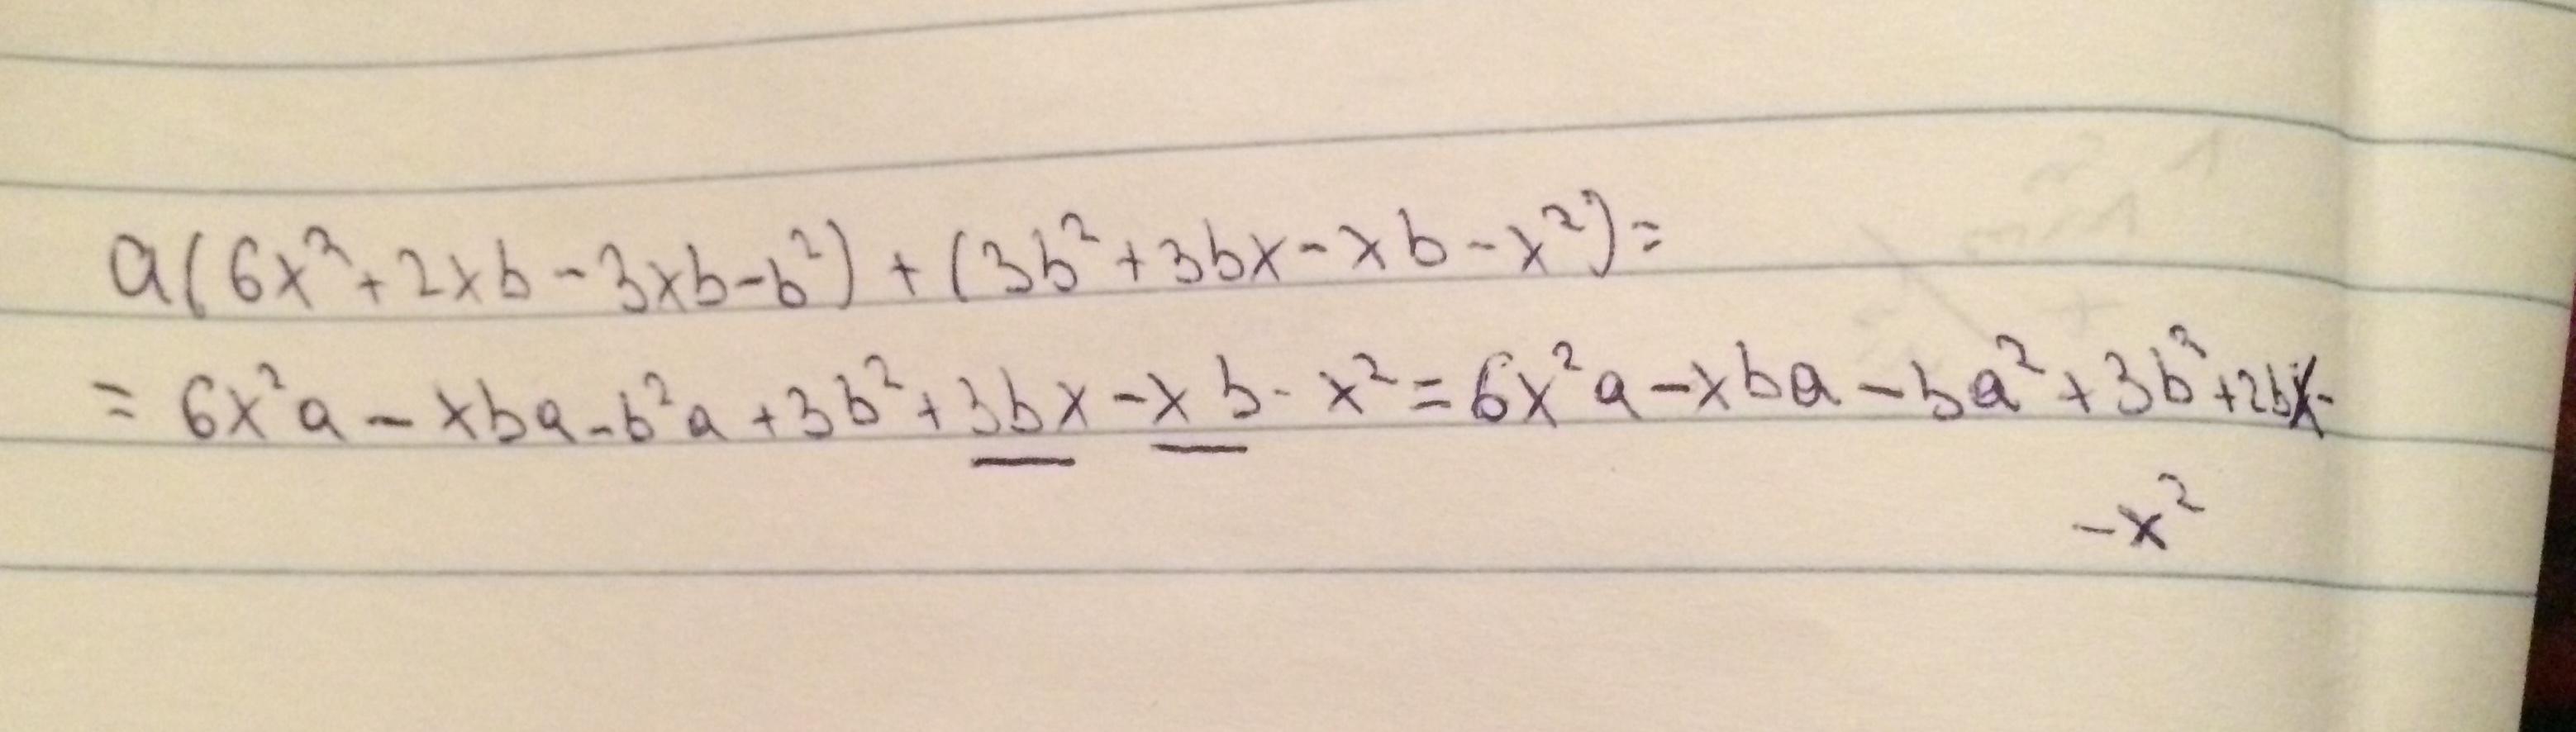 a(6x²+2xb-3xb-b²)+(3b²+3bx-xb-x²)=
=6x²a-xba-b²a+3b²+3bx-xb-x²=6x²a-xba-ba²+3b²+2bx-
-x²